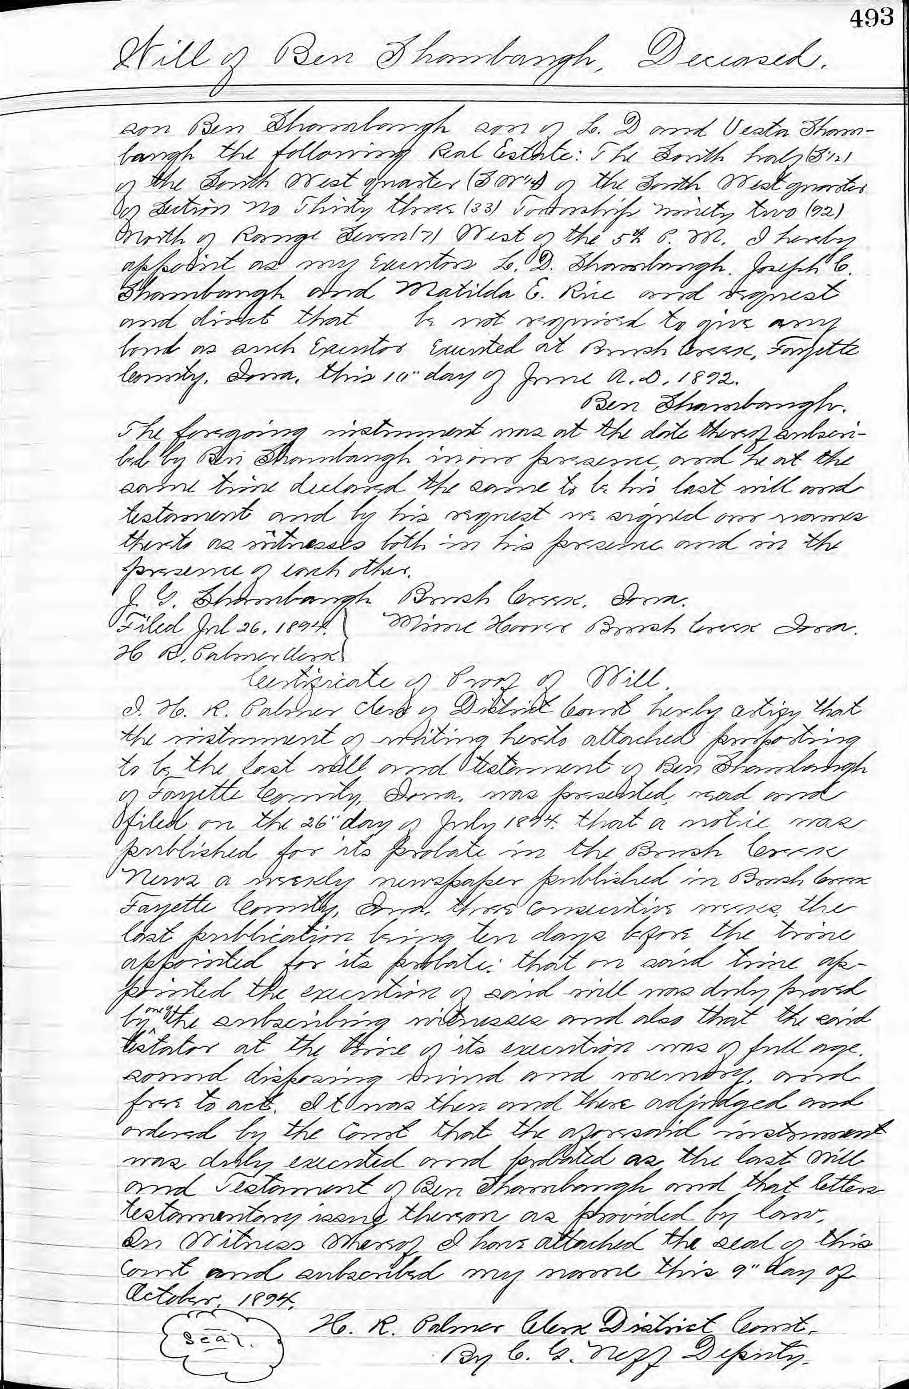 493
Will of Ben Shambaugh, Deceased.
son Ben Shambaugh son of L. D and Vesta Sham-
baugh the following Real Estate: The South half (S½)
of the South West quarter (S W ¼) of the South West quarter
of Section No Thirty three (33) Township ninety two (92)
North of Range Seven (7) West of the 5th P. M. I hereby
appoint as my Exectors L. D. Shambaugh. Joseph C.
Shambaugh and Matilda E. Rice and request
and direct that be not required to give any
bond as such Executor Executed at Brush Creek, Fayette
County, Iowa, this 10" day of June A. D. 1892.
Ben Shambaugh.
The foregoing instrument was at the date thereof subscri-
bed by Ben Shambaugh in our presence, and he at the
same time declared the same to be his last will and
testament and by his request we signed our names
thereto as witnesses both in his presence and in the
presence of each other.
J. G. Shambaugh Brush Creek, Iowa.
Filed Jul 26, 1894. Minnie Hoover Brush Creek Iowa.
H R. Palmer Clerk
Certificate of Proof of Will.
I. H. R. Palmer Clerk of District Court hereby certify that
the instrument of writing hereto attached purporting
to be the last will and testament of Ben Shambaugh
of Fayette County, Iowa, was presented, read and
filed on the 26" day of July 1894. that a notice was
published for its probate in the Brush Creek
News a weekly newspaper published in Brush Creek
Fayette County, Iowa, three consecutive weeks, the
last publication being ten days before the time
appointed for its probate: that on said time ap-
pointed the execution of said will was duly proved
by one of the subscribing witnesses and also that the said
testator at the time of its execution was of full age,
sound disposing mind and memory, and
free to act. It was then and there adjudged and
ordered by the Court that the aforesaid instrument
was duly executed and probated as the last Will
and Testament of Ben Shambaugh and that letters
testamentary issue thereon as provided by law.
In Witness Whereof I have attached the seal of this
Court and subscribed my name this 9" day of
October, 1894.
Seal. H. R. Palmer Clerk District Court.
By C. G. Neff Deputy.